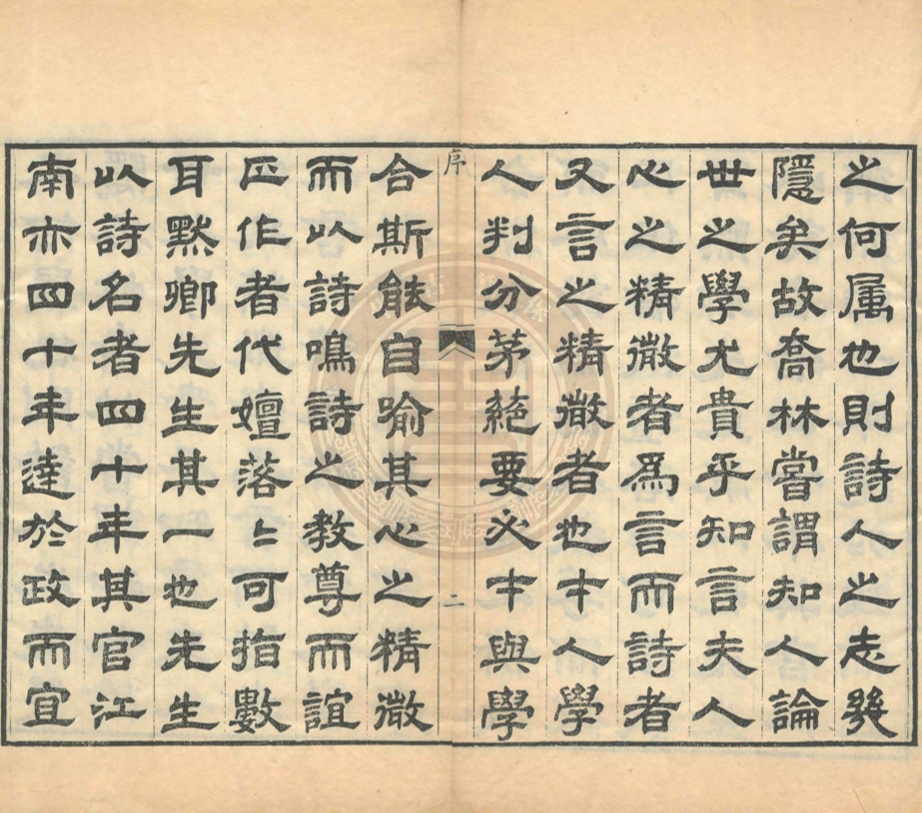 之何属也則詩人之志幾
隱矣故喬林嘗謂知人論
世之學尤貴乎知言夫人
心之精微者為言而詩者
又言之精微者也才人學
人判分茅蕝要必才與學
序
二
合斯能自喻其心之精微
而以詩鳴詩之教尊而誼
正作者代嬗落〻可指數
耳默卿先生其一也先生
以詩名者四十年其官江
南亦四十年達於政而宜